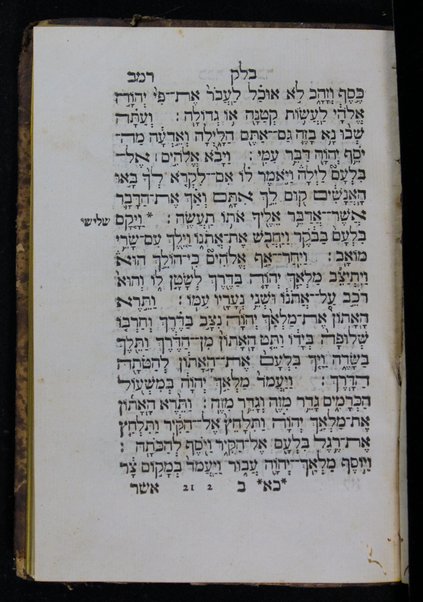 בלק רמב
כֶּסֶף וְזָהָב לֹא אוּכַל לַעֲבֹר אֶת־פִּי יְהוָה
אֱלֹהָי לַעֲשׂוֹת קְטַנָּה אוֹ גְדוֹלָה׃ וְעַתָּה
שְׁבוּ נָא בָזֶה גַּם־אַתֶּם הַלָּיְלָה וְאֵדְעָה מַה־
יֹּסֵף יְהוָה דַּבֵּר עִמִּי׃ וַיָּבֹא אֱלֹהִים ׀ אֶל־
בִּלְעָם לַיְלָה וַיֹּאמֶר לוֹ אִם־לִקְרֹא לְךָ בָּאוּ
הָאֲנָשִׁים קוּם לֵךְ אִתָּם וְאַךְ אֶת־הַדָּבָר
אֲשֶׁר־אֲדַבֵּר אֵלֶיךָ אֹתוֹ תַעֲשֶׂה׃ * וַיָּקָם שלישי
בִּלְעָם בַּבֹּקֶר וַיַּחֲבֹשׁ אֶת־אֲתֹנוֹ וַיֵּלֶךְ עִם־שָׂרֵי
מוֹאָב׃ וַיִּחַר־אַף אֱלֹהִים כִּי־הוֹלֵךְ הוּא
וַיִּתְיַצֵּב מַלְאַךְ יְהוָה בַּדֶּרֶךְ לְשָׂטָן לוֹ וְהוּא
רֹכֵב עַל־אֲתֹנוֹ וּשְׁנֵי נְעָרָיו עִמּוֹ׃ וַתֵּרֶא
הָאָתוֹן אֶת־מַלְאַךְ יְהוָה נִצָּב בַּדֶּרֶךְ וְחַרְבּוֹ
שְׁלוּפָה בְּיָדוֹ וַתֵּט הָאָתוֹן מִן־הַדֶּרֶךְ וַתֵּלֶךְ
בַּשָּׂדֶה וַיַּךְ בִּלְעָם אֶת־הָאָתוֹן לְהַטֹּתָהּ
הַדָּרֶךְ׃ וַיַּעֲמֹד מַלְאַךְ יְהוָה בְּמִשְׁעוֹל
הַכְּרָמִים גָּדֵר מִזֶּה וְגָדֵר מִזֶּה׃ וַתֵּרֶא הָאָתוֹן
אֶת־מַלְאַךְ יְהוָה וַתִּלָּחֵץ אֶל־הַקִּיר וַתִּלְחַץ
אֶת־רֶגֶל בִּלְעָם אֶל־הַקִּיר וַיֹּסֶף לְהַכֹּתָהּ׃
וַיּוֹסֶף מַלְאַךְ־יְהוָה עֲבוֹר וַיַּעֲמֹד בְּמָקוֹם צָר
*כא* ב 2 21 אשר